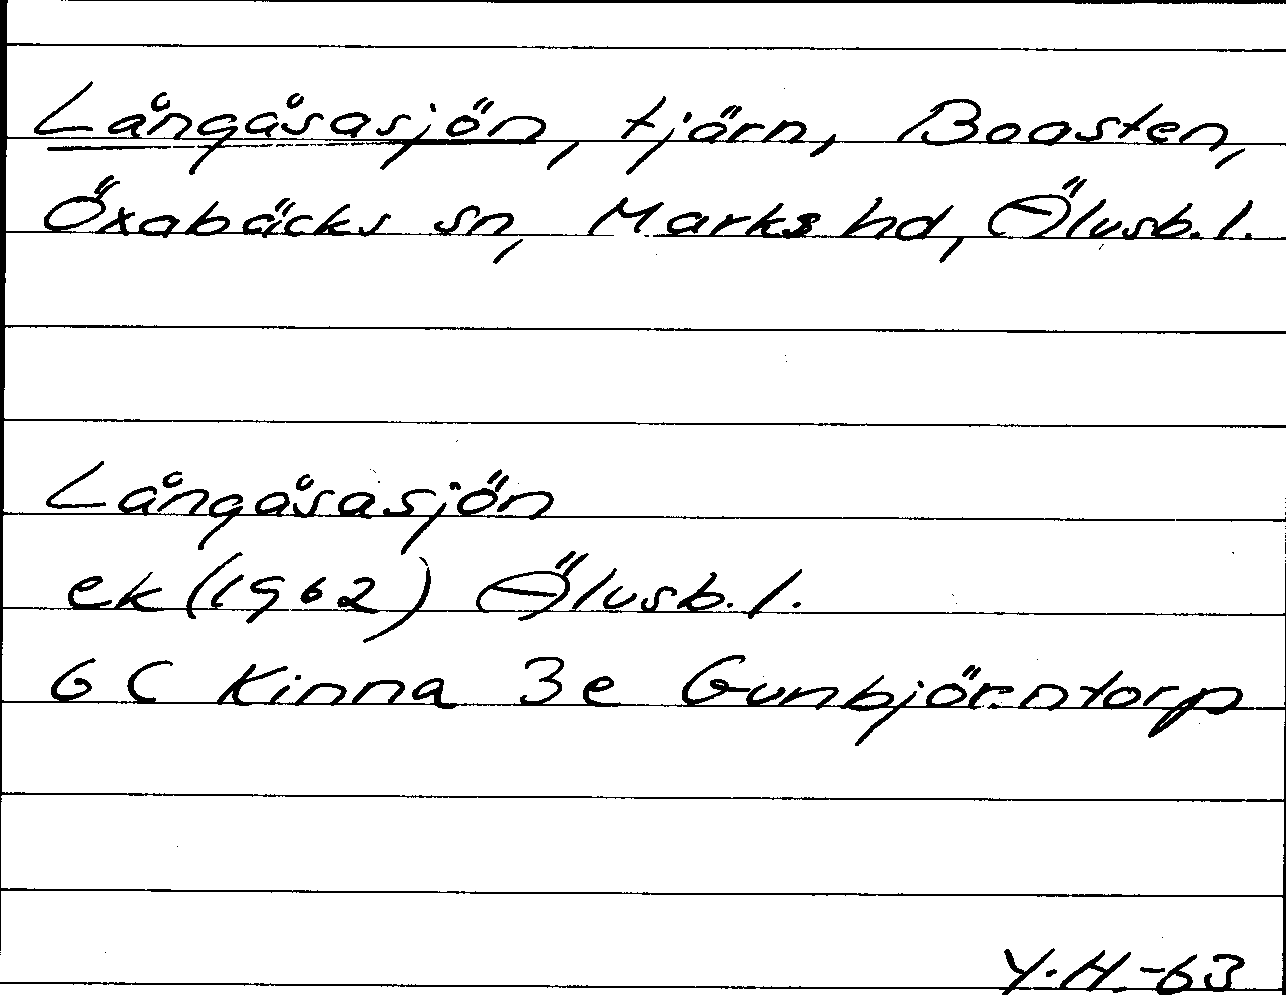 Långåsasjön, tjärn, Boasten,
Öxabäcks sn, Marks hd, Älvsb. l.
Långåsasjön
ek (1962) Älvsb. l.
6 C Kinna 3e Gunbjörntorp
Y.H.-63